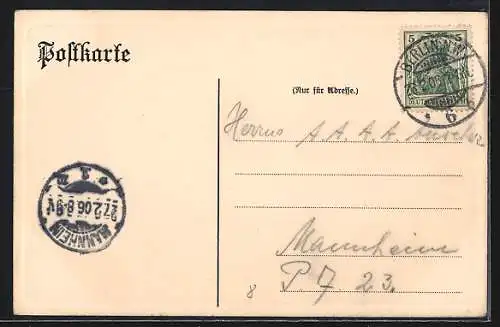 Postkarte
5
BERLIN N.W.
6
(Nur für Adresse.)
Herrn A. A. A.
Mannheim
P 7 23.
8
MANNHEIM
27.2.06.8-9V